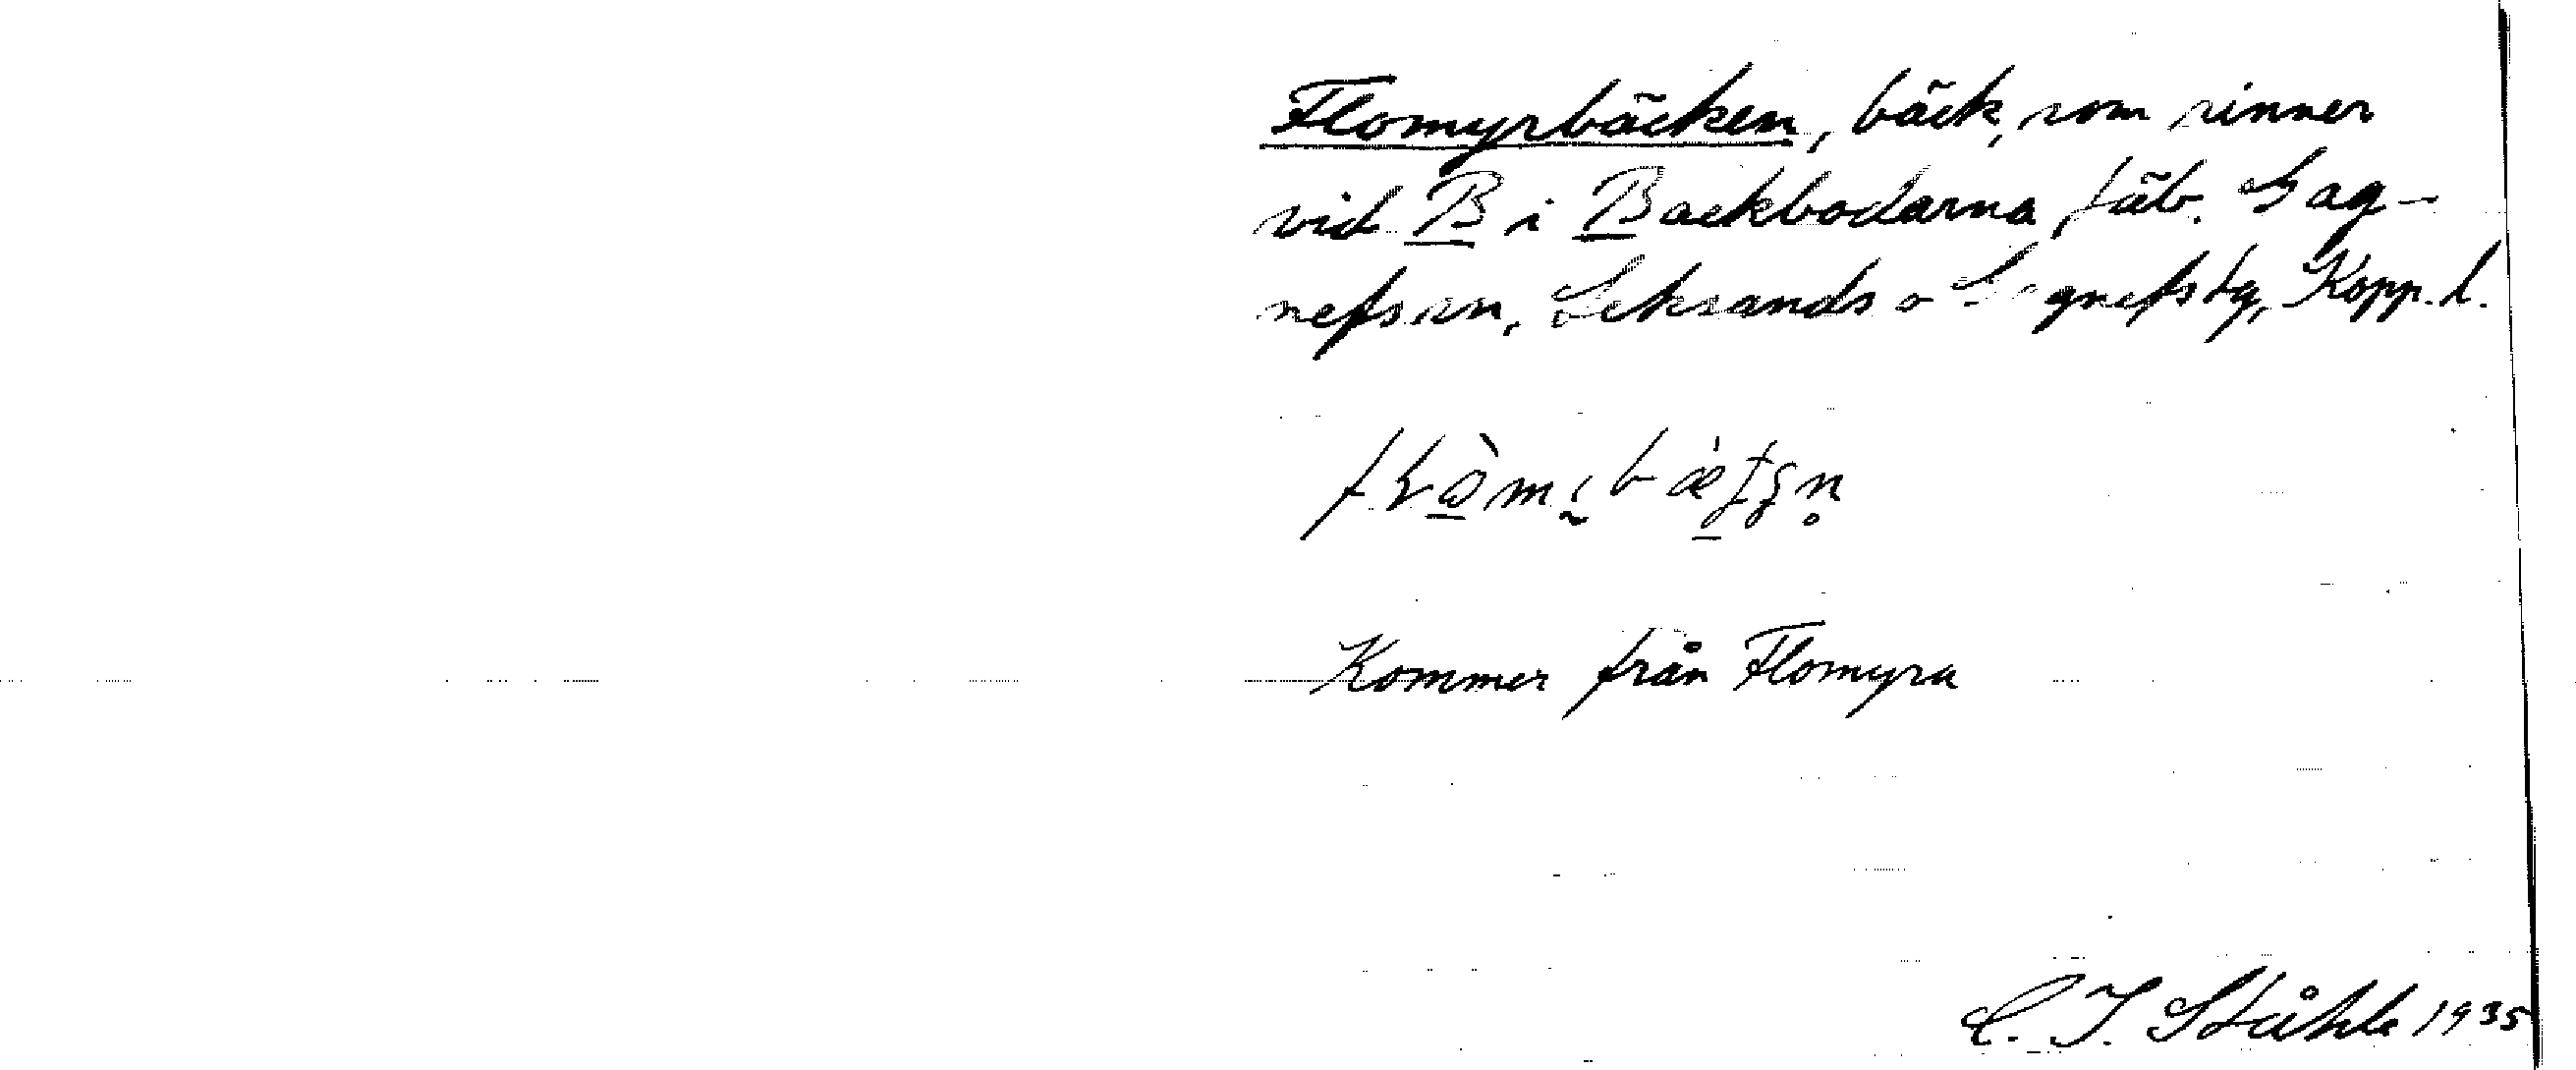 Flomyrbäcken, bäck, som rinner
vid B i Backbodarna, fäb. Gag-
nefs sn, Leksands o Gagnefs tg, Kopp. l.
Kommer från Flomyra
C. I. Ståhle 1935